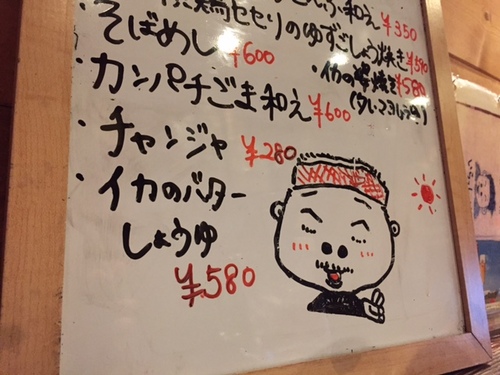 こんぶ和え ¥350
鶏セセリのゆずごしょう焼き ¥590
・そばめし ¥600
・イカの
¥580
・カンパチごま和え ¥600
・チャンジャ ¥280
・イカのバター
しょうゆ
¥580